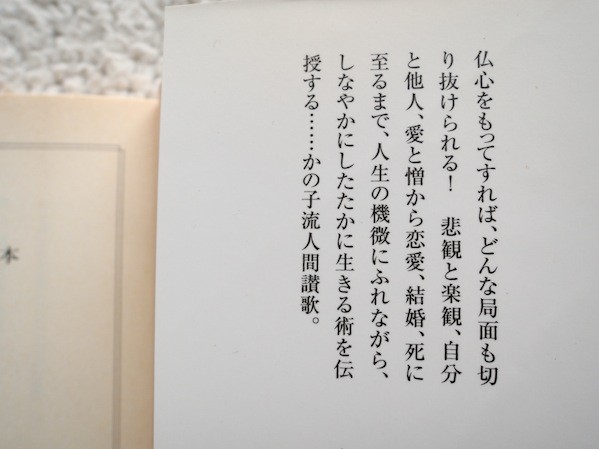 仏心をもってすれば、どんな局面も切
り抜けられる！　悲観と楽観、自分
と他人、愛と憎から恋愛、結婚、死に
至るまで、人生の機微にふれながら、
しなやかにしたたかに生きる術を伝
授する……かの子流人間讃歌。
本